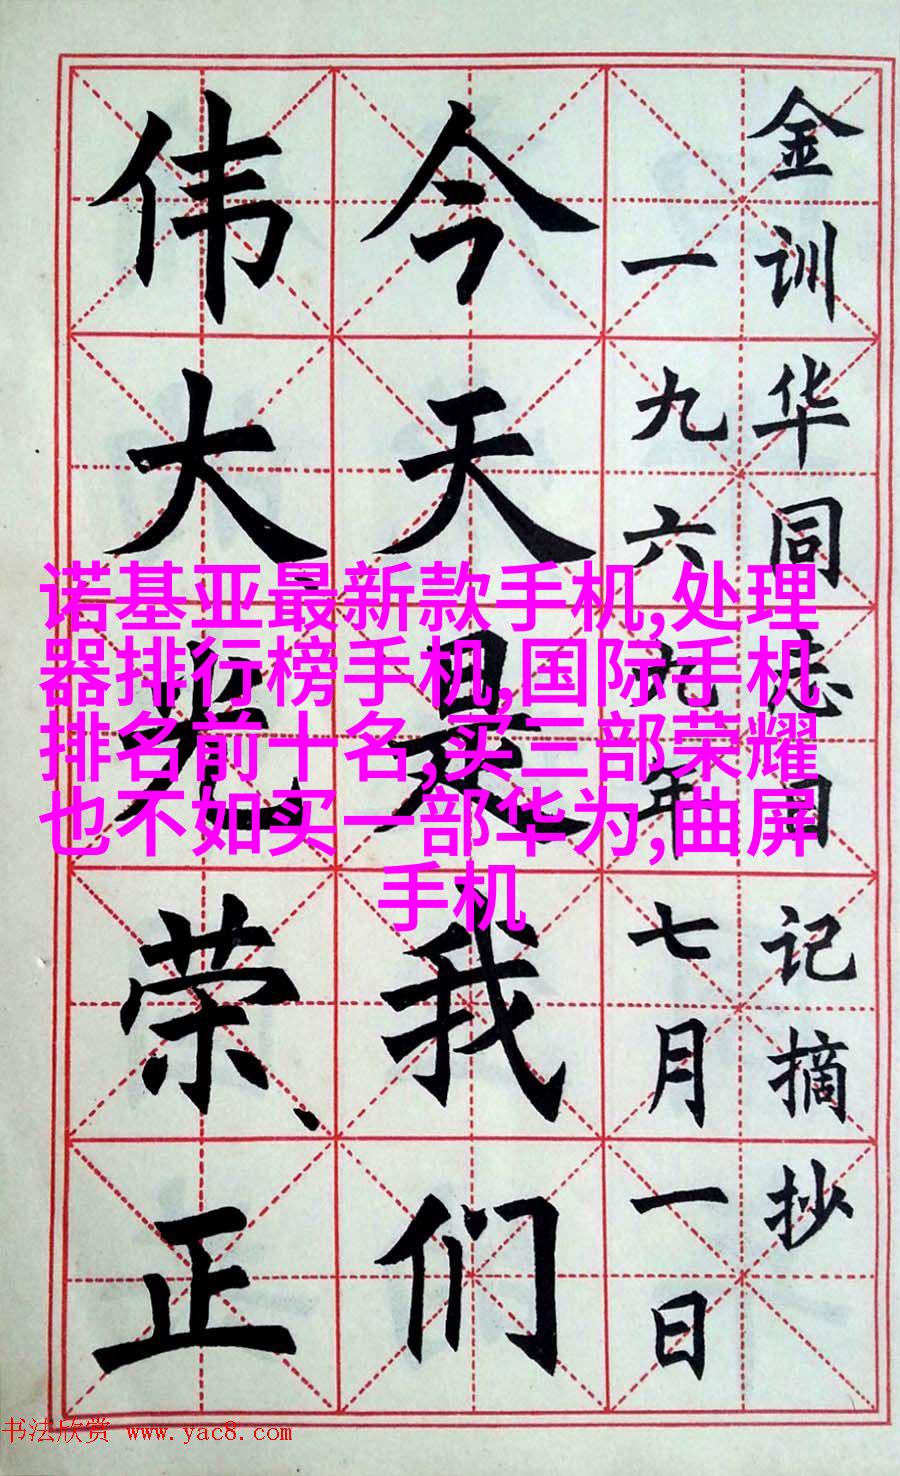 金训华同志日记摘抄
一九六九年七月一日
今天是我们
伟大、光、荣、正
诺基亚最新款手机,处理
器排行榜手机,国际手机
排名前十名,买三部荣耀
也不如买一部华为,曲屏
手机
书法欣赏 www.yac8.com